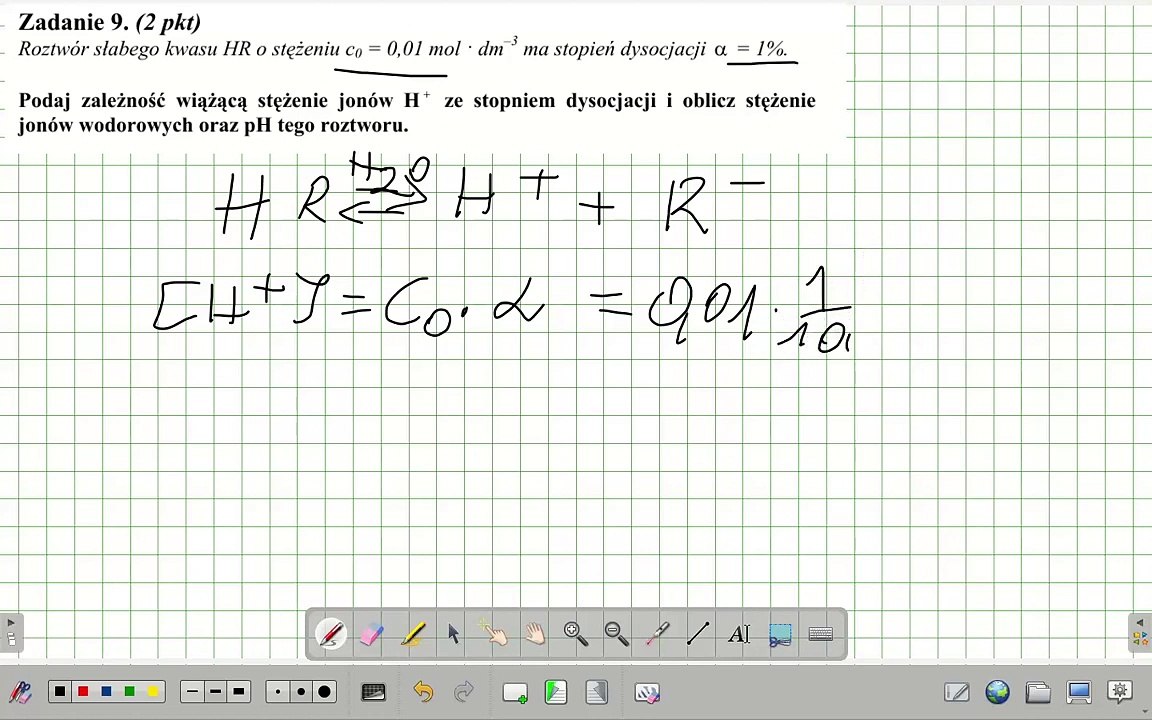 Zadanie 9. (2 pkt)
Roztwór słabego kwasu HR o stężeniu c₀ = 0,01 mol · dm⁻³ ma stopień dysocjacji α = 1%.
Podaj zależność wiążącą stężenie jonów H⁺ ze stopniem dysocjacji i oblicz stężenie
jonów wodorowych oraz pH tego roztworu.
H R ⇄ H⁺ + R⁻
H₂O
[H⁺] = C₀ · α = 0,01 · 1/10
AI